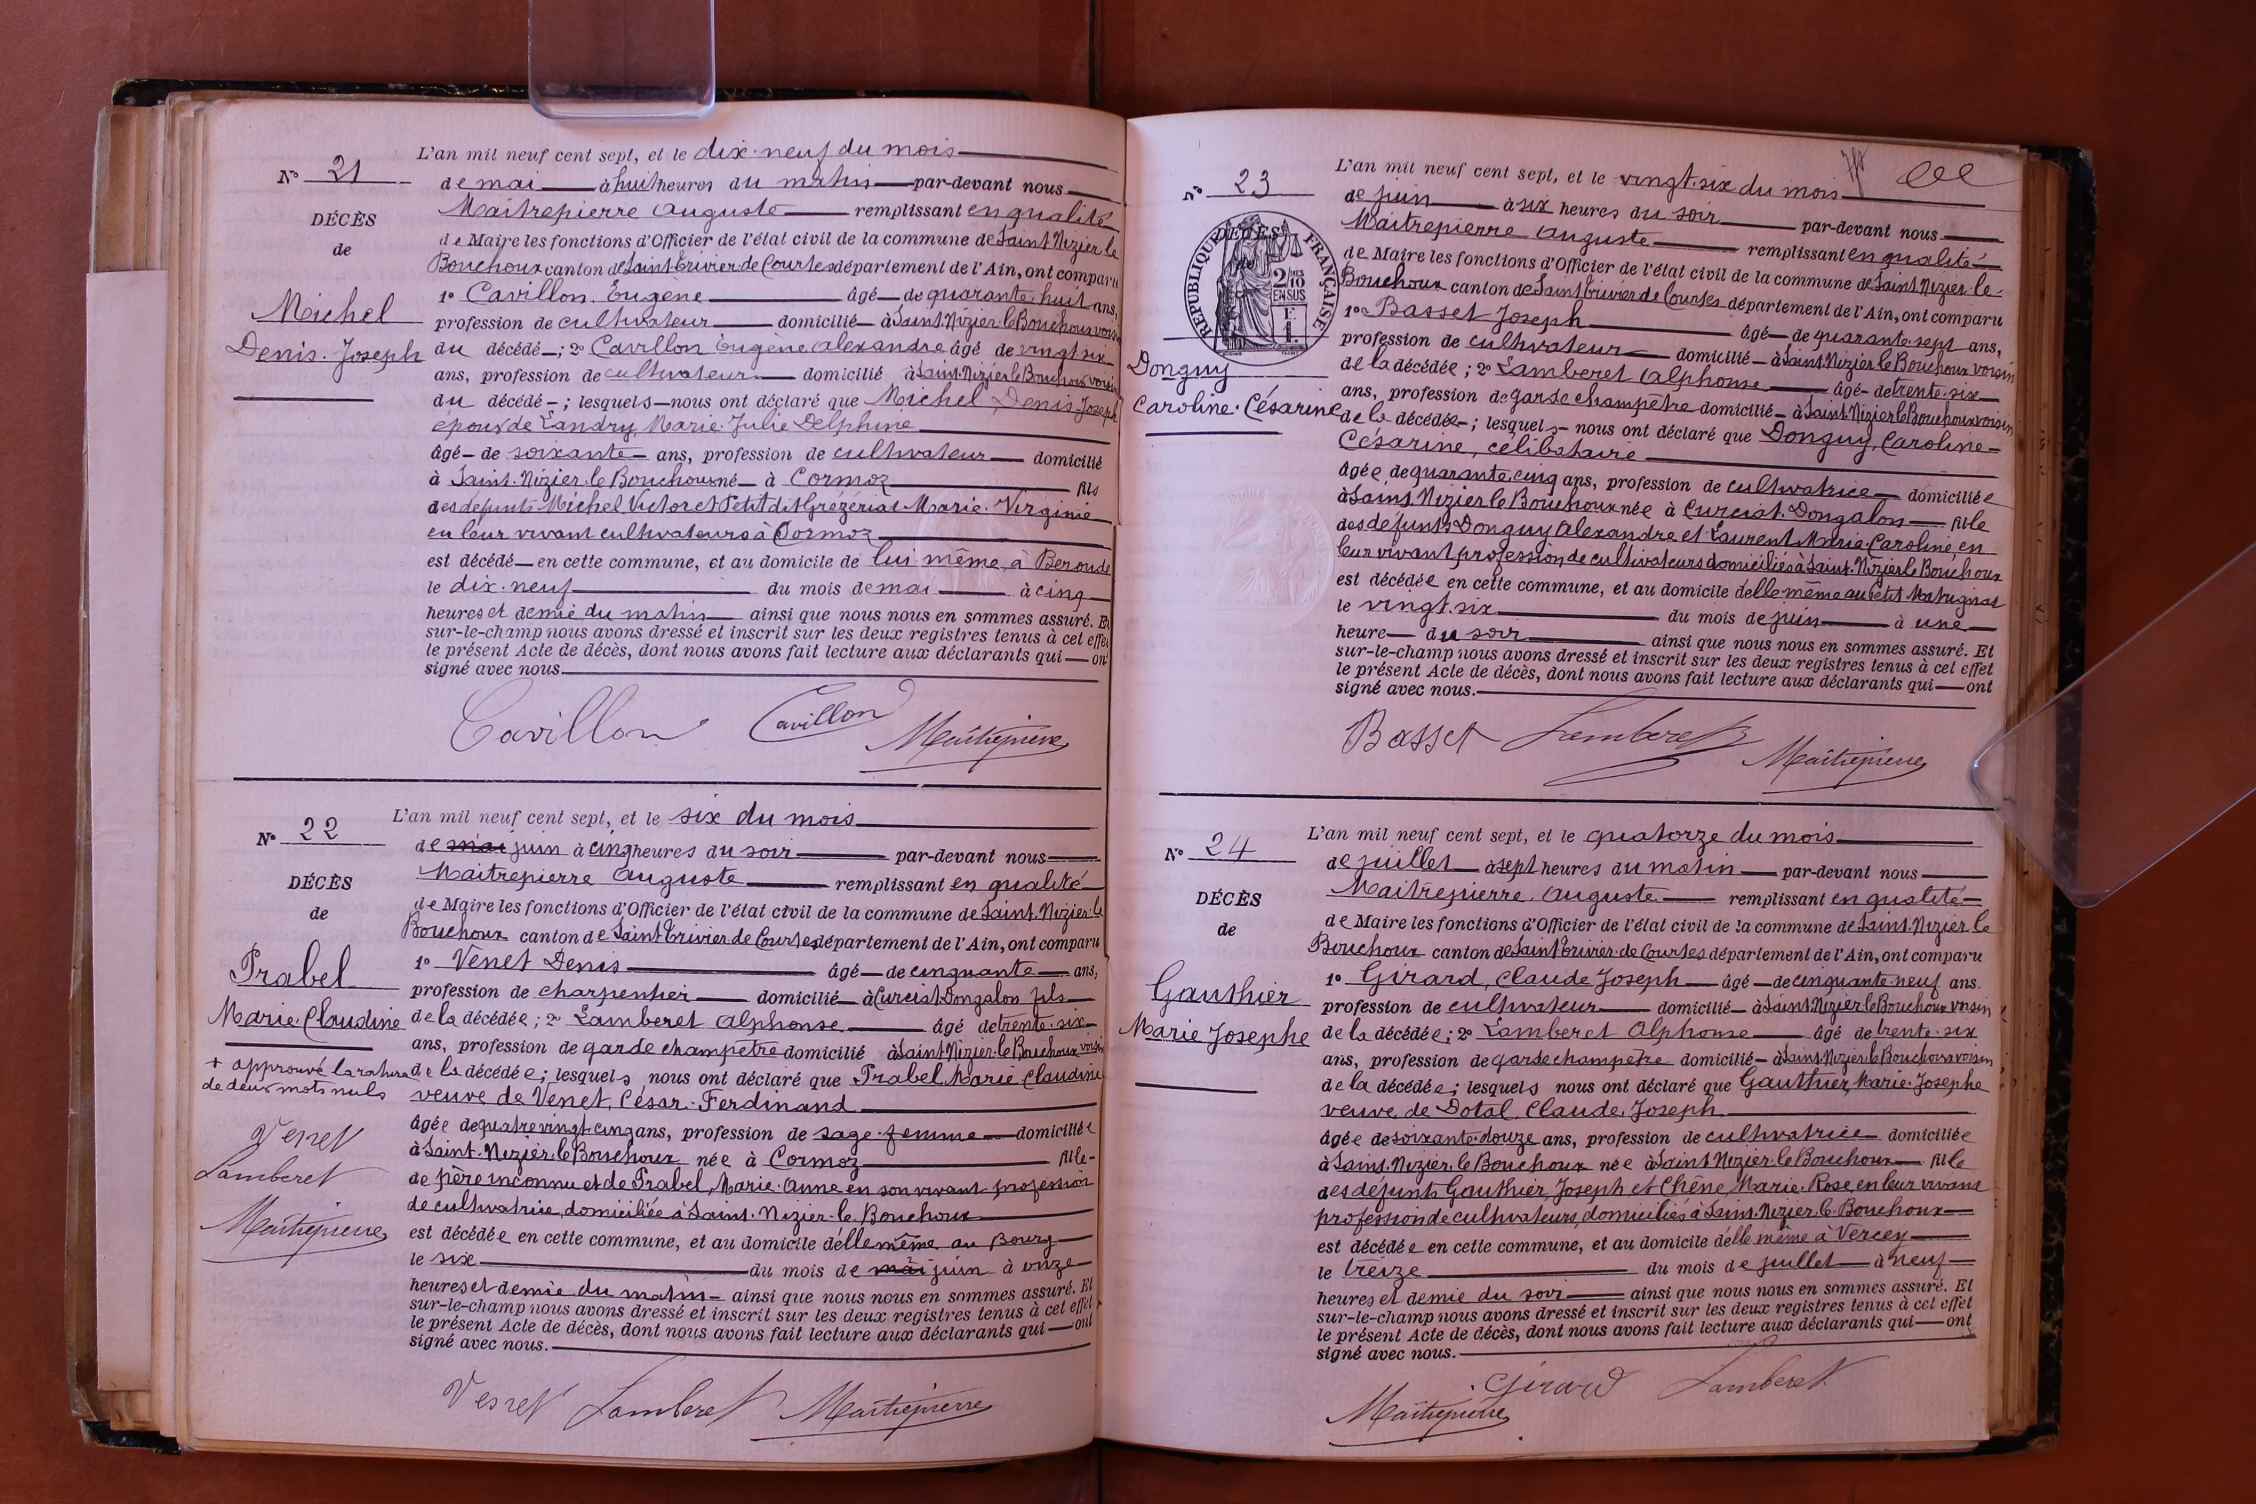 N° 21
DÉCÈS
de
Michel
Denis-Joseph
L'an mil neuf cent sept, et le dix-neuf du mois
de mai à huit heures du matin par-devant nous
Maîtrepierre Auguste remplissant en qualité
de Maire les fonctions d'Officier de l'état civil de la commune de Saint-Nizier-le
Bouchoux canton de Saint-Trivier-de-Courtes département de l'Ain, ont comparu
1° Cavillon Eugène âgé de quarante-huit ans,
profession de cultivateur domicilié à Saint-Nizier-le-Bouchoux voisin
du décédé ; 2° Cavillon Eugène Alexandre âgé de vingt-six
ans, profession de cultivateur domicilié à Saint-Nizier-le-Bouchoux voisin
du décédé ; lesquels nous ont déclaré que Michel, Denis-Joseph
époux de Landry, Marie-Julie Delphine
âgé de soixante ans, profession de cultivateur domicilié
à Saint-Nizier-le-Bouchoux né à Cormoz fils
des défunts Michel Victor et Petit dit Grézériat Marie-Virginie
en leur vivant cultivateurs à Cormoz
est décédé en cette commune, et au domicile de lui même, à Beroude
le dix-neuf du mois de mai à cinq
heures et demie du matin ainsi que nous nous en sommes assuré. Et
sur-le-champ nous avons dressé et inscrit sur les deux registres tenus à cet effet
le présent Acte de décès, dont nous avons fait lecture aux déclarants qui ont
signé avec nous.
Cavillon Cavillon Maîtrepierre
N° 22
DÉCÈS
de
Prabel
Marie-Claudine
+ approuvé la rature
de deux mots nuls
Venet
Lamberet
Maîtrepierre
L'an mil neuf cent sept, et le six du mois
de mai juin à cinq heures du soir par-devant nous
Maîtrepierre Auguste remplissant en qualité
de Maire les fonctions d'Officier de l'état civil de la commune de Saint-Nizier-le
Bouchoux canton de Saint-Trivier-de-Courtes département de l'Ain, ont comparu
1° Venet Denis âgé de cinquante ans,
profession de charpentier domicilié à Curciat-Dongalon fils
de la décédée ; 2° Lamberet Alphonse âgé de trente-six
ans, profession de garde champêtre domicilié à Saint-Nizier-le-Bouchoux voisin
de la décédée ; lesquels nous ont déclaré que Prabel, Marie Claudine
veuve de Venet, César-Ferdinand
âgée de quatre vingt-cinq ans, profession de sage-femme domiciliée
à Saint-Nizier-le-Bouchoux née à Cormoz fille
de père inconnu et de Prabel, Marie-Anne en son vivant profession
de cultivatrice, domiciliée à Saint-Nizier-le-Bouchoux
est décédée en cette commune, et au domicile d'elle même au Bourg
le six du mois de mai juin à onze
heures et demie du matin ainsi que nous nous en sommes assuré. Et
sur-le-champ nous avons dressé et inscrit sur les deux registres tenus à cet effet
le présent Acte de décès, dont nous avons fait lecture aux déclarants qui ont
signé avec nous.
Venet Lamberet Maîtrepierre
N° 23
DÉCÈS
RÉPUBLIQUE FRANÇAISE
2/10 EN SUS
Donguy
Caroline-Césarine
L'an mil neuf cent sept, et le vingt-six du mois
de juin à six heures du soir par-devant nous
Maîtrepierre Auguste remplissant en qualité
de Maire les fonctions d'Officier de l'état civil de la commune de Saint-Nizier-le-
Bouchoux canton de Saint-Trivier-de-Courtes département de l'Ain, ont comparu
1° Basset Joseph âgé de quarante-sept ans,
profession de cultivateur domicilié à Saint-Nizier-le-Bouchoux voisin
de la décédée ; 2° Lamberet Alphonse âgé de trente-six
ans, profession de garde champêtre domicilié à Saint-Nizier-le-Bouchoux voisin
de la décédée ; lesquels nous ont déclaré que Donguy, Caroline-
Césarine, célibataire
âgée de quarante cinq ans, profession de cultivatrice domiciliée
à Saint-Nizier-le-Bouchoux née à Curciat-Dongalon fille
des défunts Donguy Alexandre et Laurent Marie-Caroline, en
leur vivant profession de cultivateurs domiciliés à Saint-Nizier-le-Bouchoux
est décédée en cette commune, et au domicile d'elle même au Petit Matugnat
le vingt-six du mois de juin à une
heure du soir ainsi que nous nous en sommes assuré. Et
sur-le-champ nous avons dressé et inscrit sur les deux registres tenus à cet effet
le présent Acte de décès, dont nous avons fait lecture aux déclarants qui ont
signé avec nous.
Basset Lamberet Maîtrepierre
N° 24
DÉCÈS
de
Gauthier
Marie Josephe
L'an mil neuf cent sept, et le quatorze du mois
de juillet à sept heures du matin par-devant nous
Maîtrepierre Auguste remplissant en qualité
de Maire les fonctions d'Officier de l'état civil de la commune de Saint-Nizier-le
Bouchoux canton de Saint-Trivier-de-Courtes département de l'Ain, ont comparu
1° Girard, Claude Joseph âgé de cinquante-neuf ans
profession de cultivateur domicilié à Saint-Nizier-le-Bouchoux voisin
de la décédée ; 2° Lamberet Alphonse âgé de trente-six
ans, profession de garde champêtre domicilié à Saint-Nizier-le-Bouchoux voisin
de la décédée ; lesquels nous ont déclaré que Gauthier, Marie-Josephe
veuve de Dotal, Claude, Joseph
âgée de soixante-douze ans, profession de cultivatrice domiciliée
à Saint-Nizier-le-Bouchoux née à Saint-Nizier-le-Bouchoux fille
des défunts Gauthier, Joseph et Chêne, Marie-Rose, en leur vivant
profession de cultivateurs, domiciliés à Saint-Nizier-le-Bouchoux
est décédée en cette commune, et au domicile d'elle même à Vercey
le treize du mois de juillet à neuf
heures et demie du soir ainsi que nous nous en sommes assuré. Et
sur-le-champ nous avons dressé et inscrit sur les deux registres tenus à cet effet
le présent Acte de décès, dont nous avons fait lecture aux déclarants qui ont
signé avec nous.
Girard Lamberet
Maîtrepierre